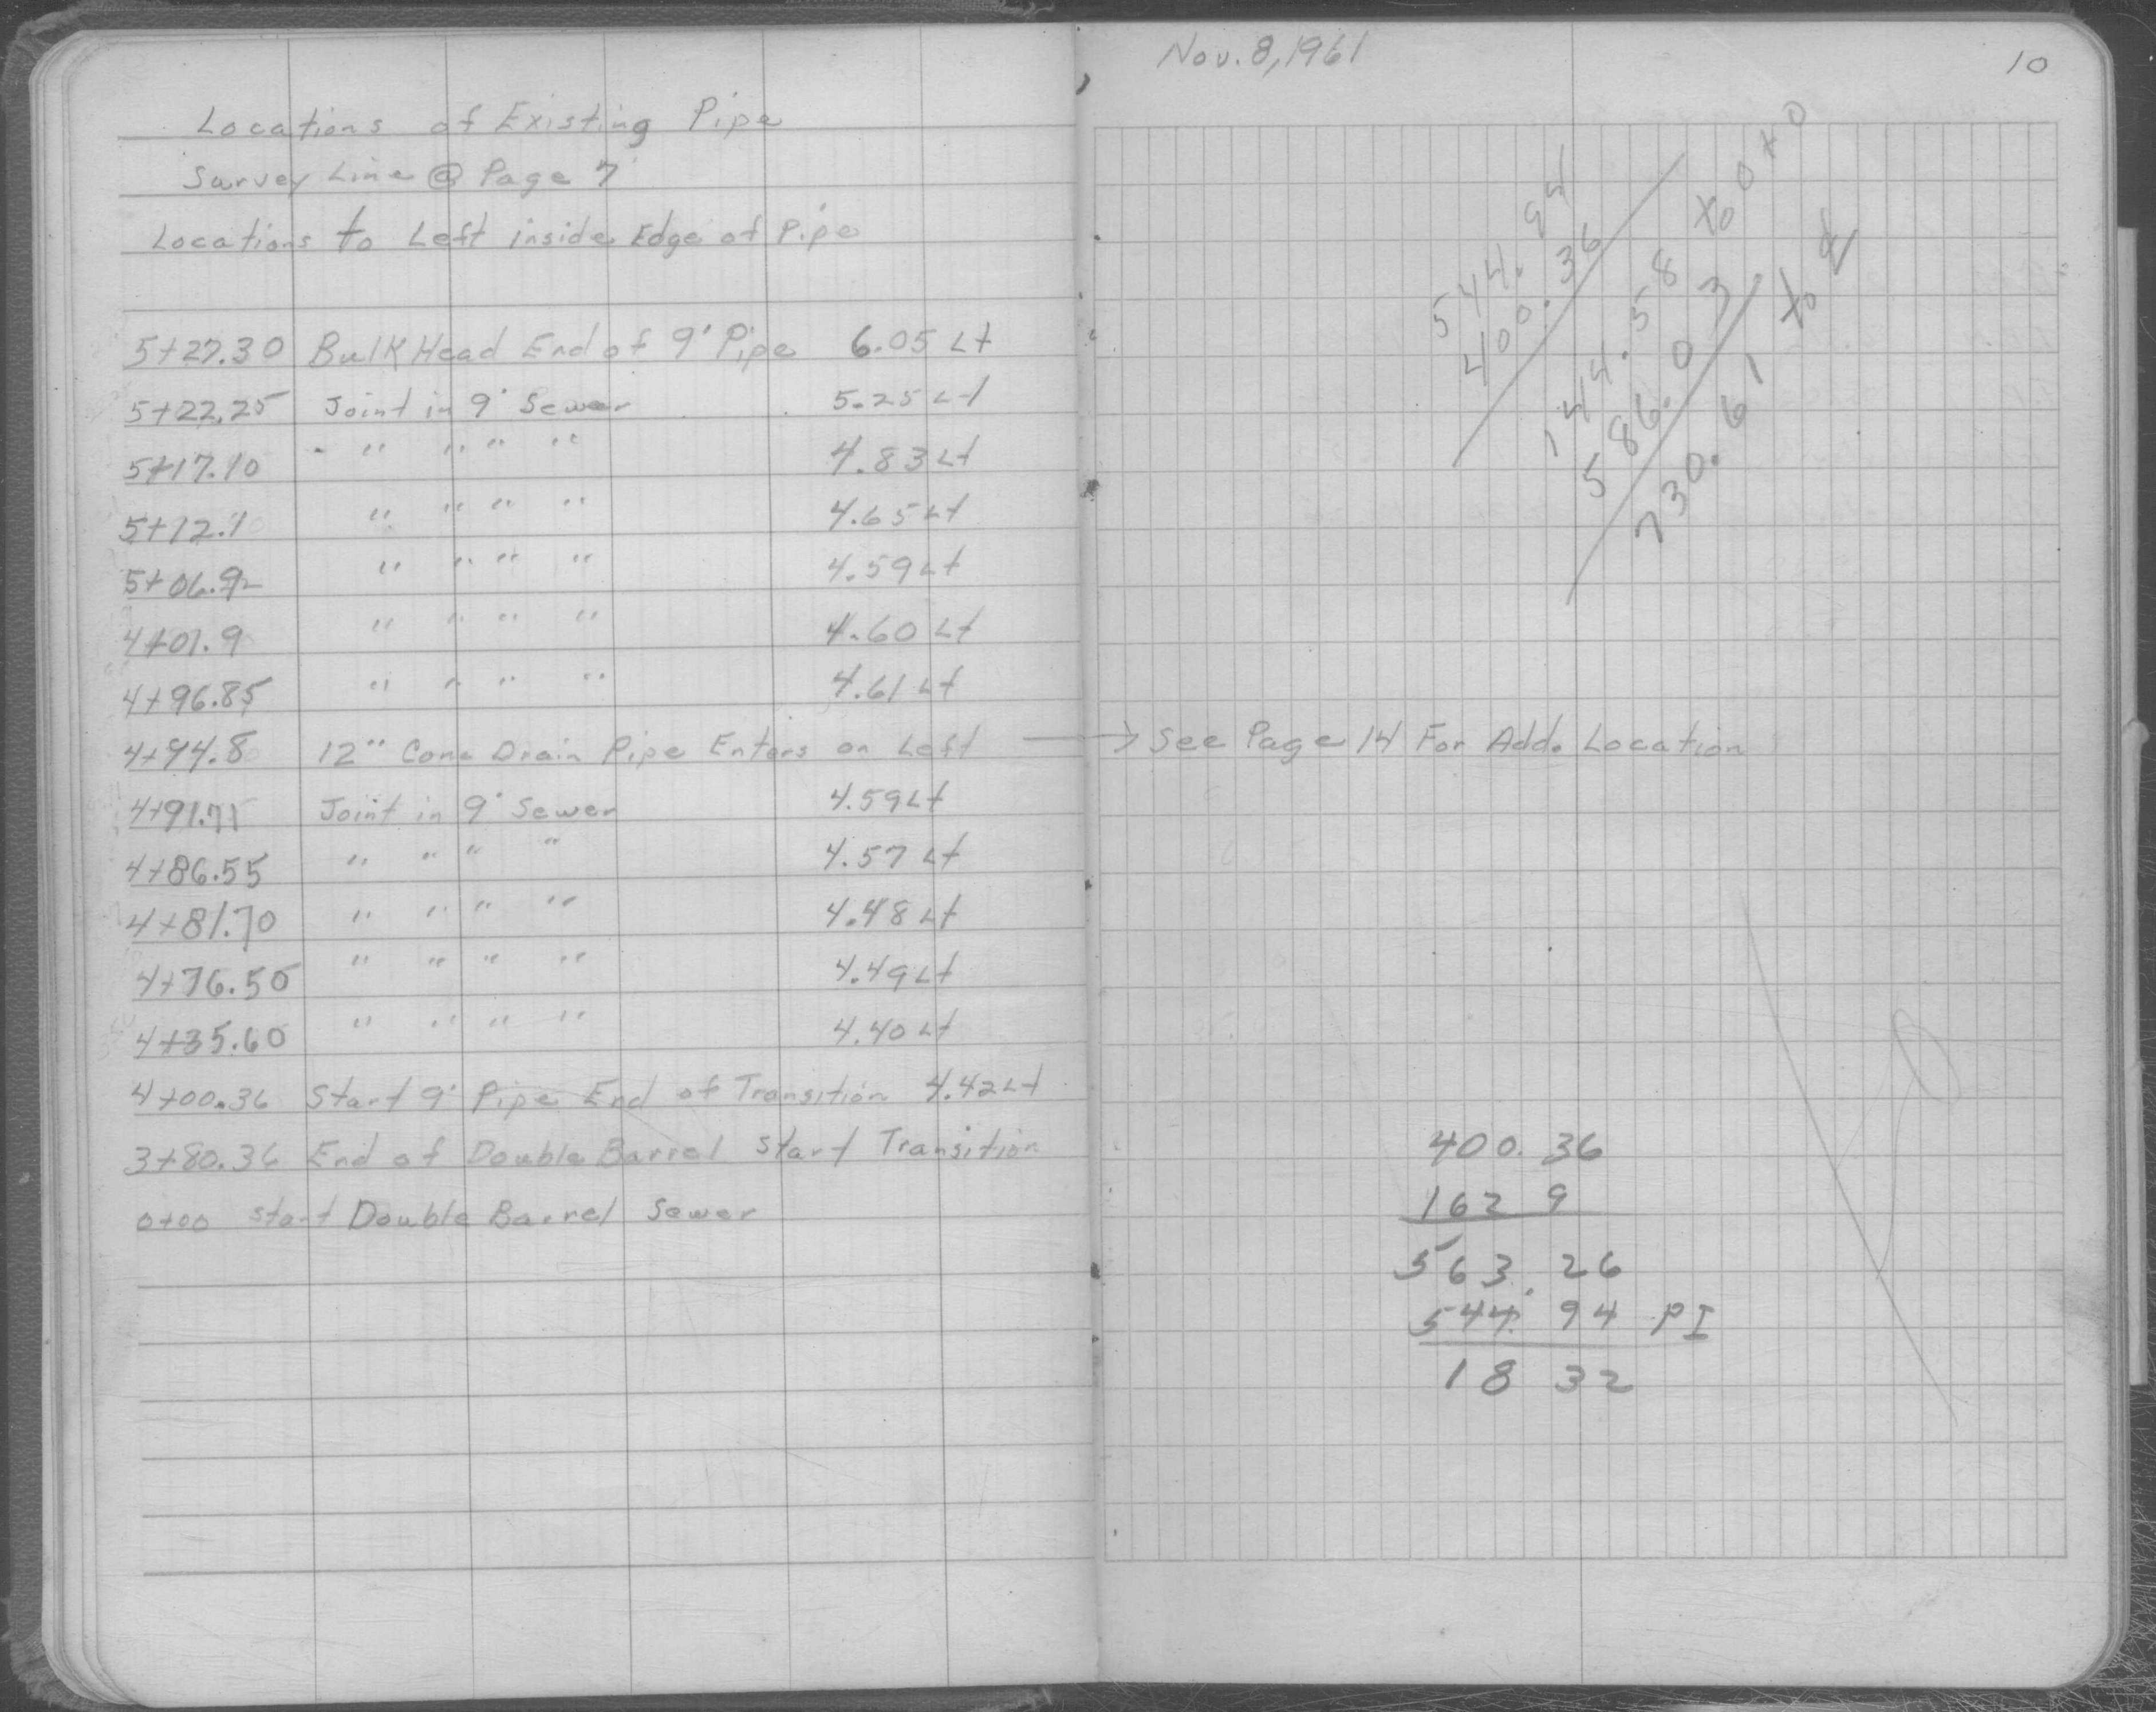 Locations of Existing Pipe
Survey Line @ Page 7
Locations to Left inside Edge of Pipe
5+27.30 Bulk Head End of 9' Pipe 6.05 Lt
5+22.25 Joint in 9' Sewer 5.25 Lt
5+17.10 " " " " 4.83 Lt
5+12.1 " " " " 4.65 Lt
5+06.9 " " " " 4.59 Lt
4+01.9 " " " " 4.60 Lt
4+96.85 " " " " 4.61 Lt
4+94.8 12" Conc Drain Pipe Enters on Left
4+91.75 Joint in 9' Sewer 4.59 Lt
4+86.55 " " " " 4.57 Lt
4+81.70 " " " " 4.48 Lt
4+76.50 " " " " 4.49 Lt
4+35.60 " " " " 4.40 Lt
4+00.36 Start 9' Pipe End of Transition 4.42 Lt
3+80.36 End of Double Barrel Start Transition
0+00 Start Double Barrel Sewer
Nov. 8, 1961
10
544.94
400.36
144.58 to 0+0
586.03
730.61 to
→ See Page 14 For Add. Location
400.36
162 9
563.26
544.94 PI
18 32